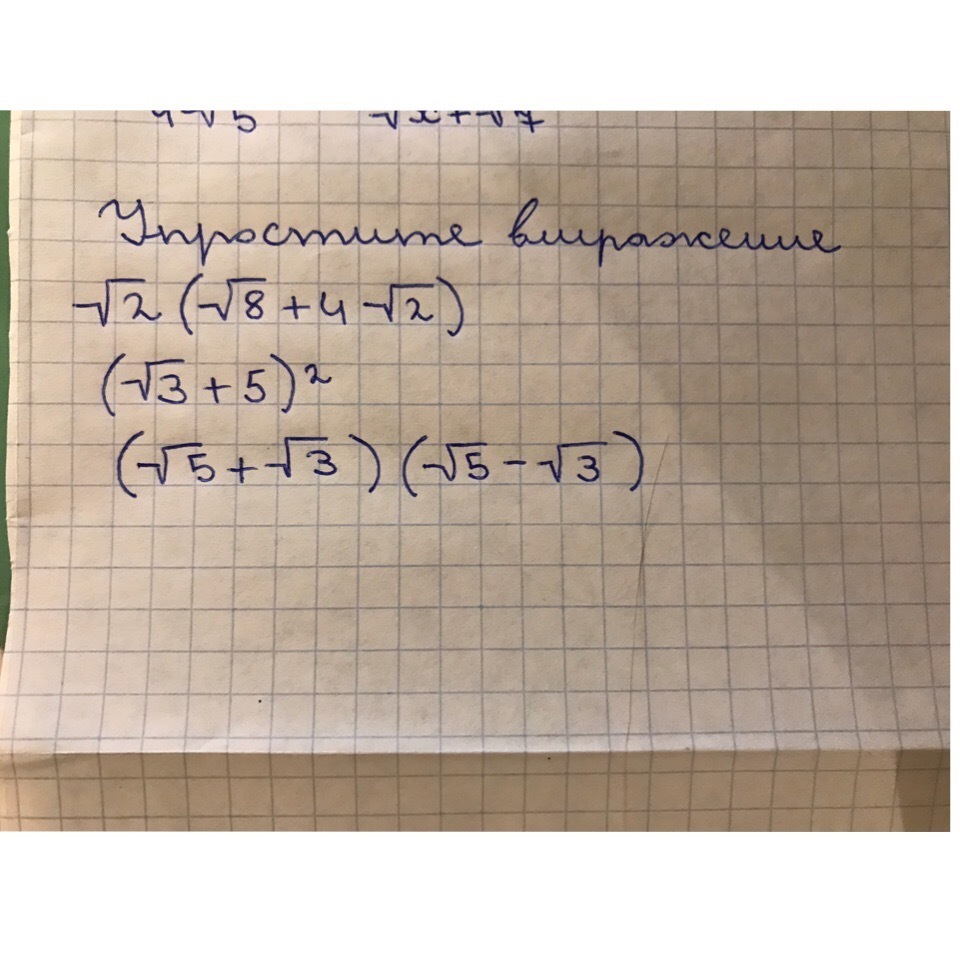 4√5 √x+√7
Упростите выражение
√2 (√8 + 4 √2)
(√3 + 5)²
(√5 + √3) (√5 - √3)